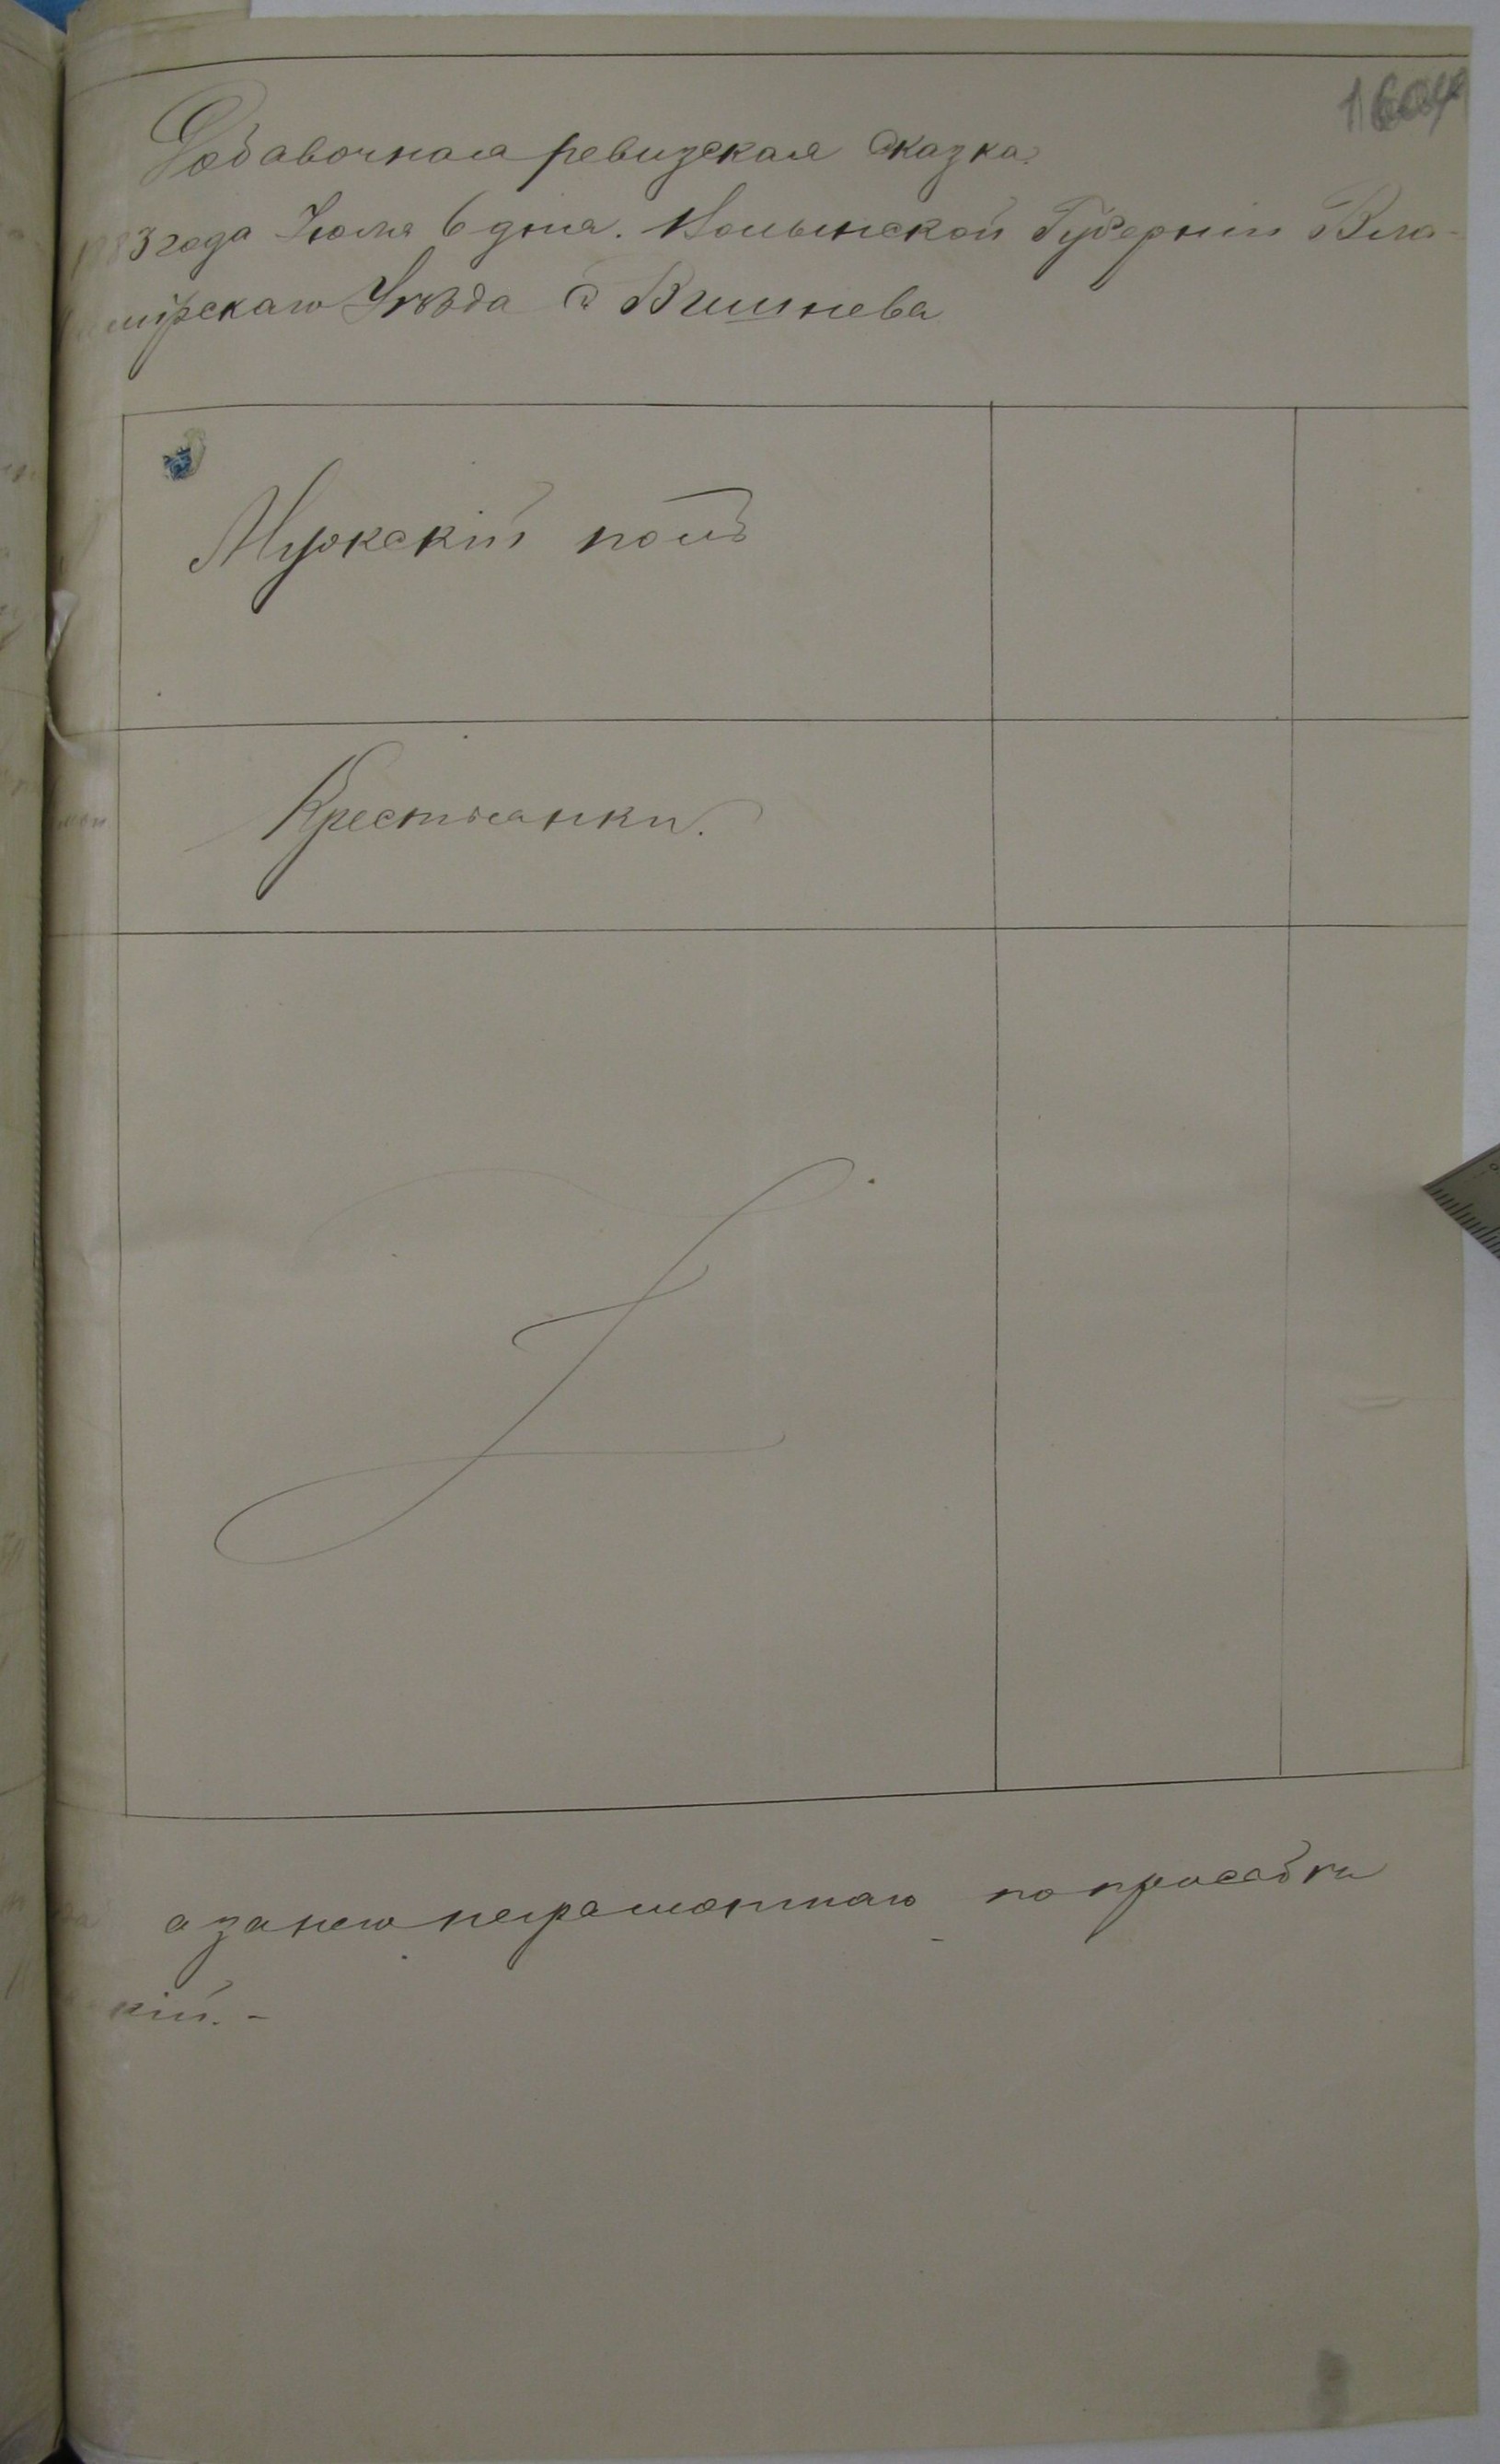 Добавочная ревизская сказка
3 года Іюля 6 дня. Волынской Губерніи Вла-
мірскаго Уѣзда с Вишнева
Мужскій полъ
Крестьянки.
а за него неграмотнаго по просьбѣ
кій. -